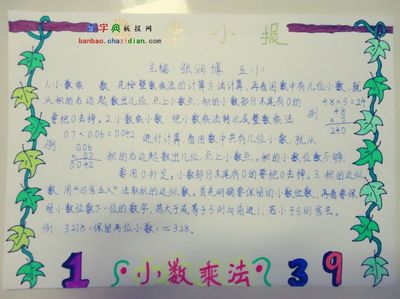 字典板报网
banbao.chazidian.com
小报
主编 张润博 五小
1.小数乘 数 先按整数乘法的计算方法计算,再看因数中有几位小数,就
从积的右边起数出几位,点上小数点,积的小数部分末尾有0的
要把0去掉。2.小数乘小数 把小数乘法转化成整数乘法
例: 4.8×5=24
4.8
× 5
24.0
例: 0.7×0.06=0.042 进行计算,看因数中共有几位小数,就从
0.06
× 0.7
0.042
积的右边起数出几位,点上小数点。积的小数位数不够,
要用0补足。小数部分末尾有0的要把0去掉。3.积的近似
数 用"四舍五入"法取积的近似数。首先明确要保留的小数位数,再看要保
留小数位数下一位的数字,若大于或等于5则向前进1,若小于5则舍去。
例 (保留两位小数)≈3.28。
1 小数乘法 3 9